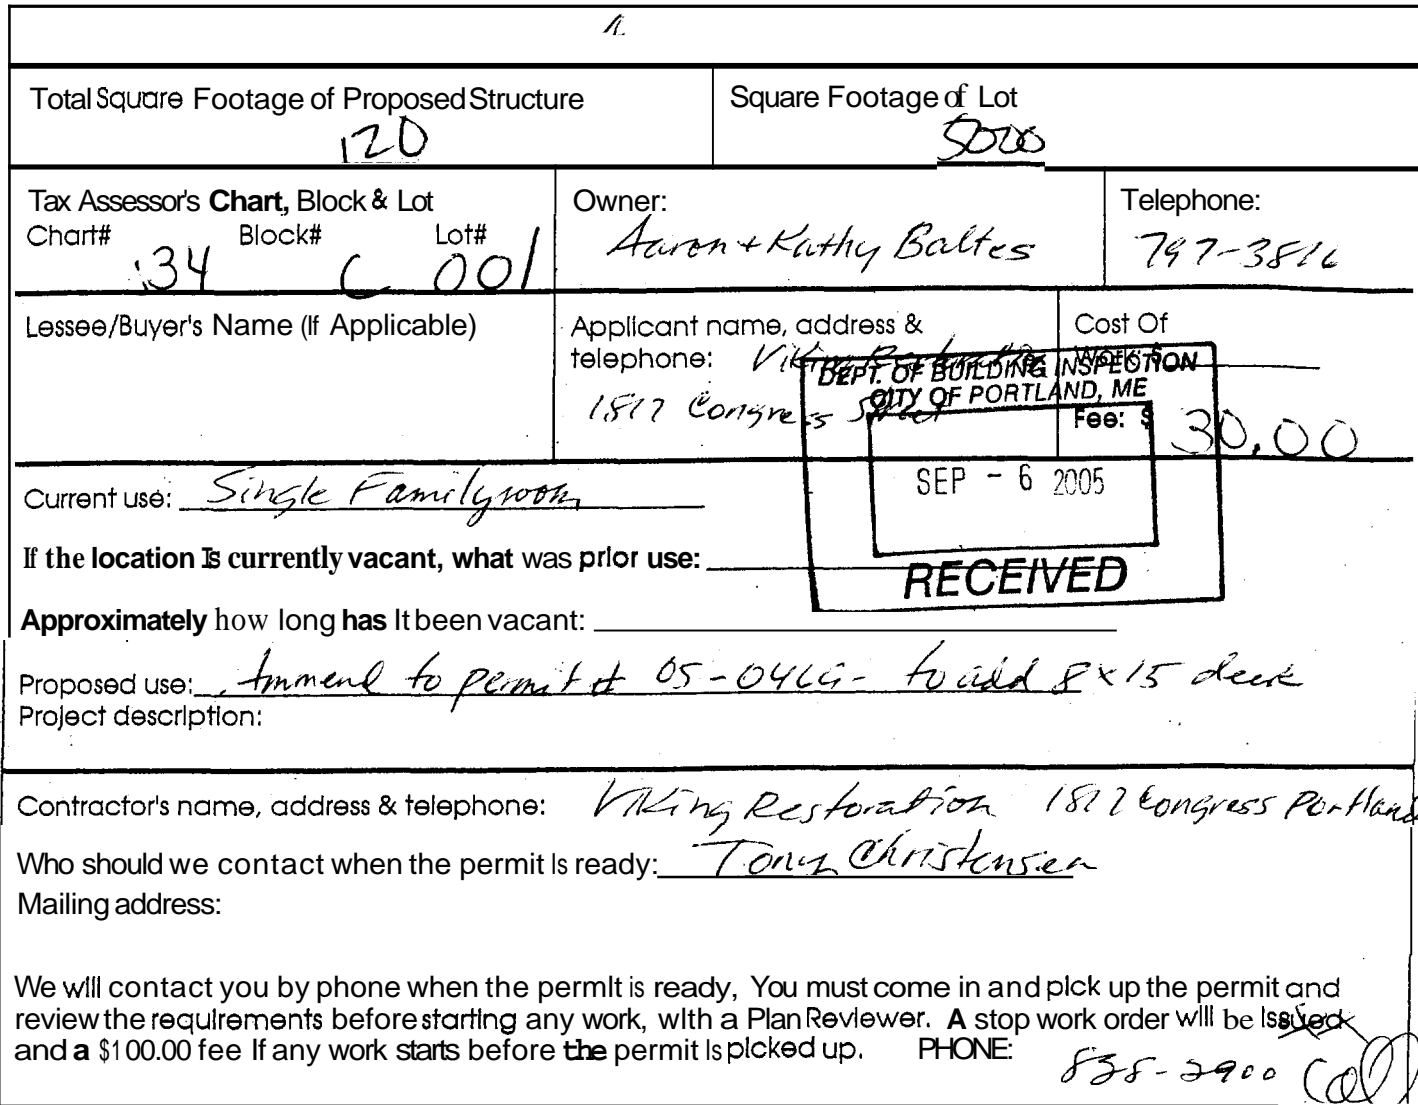 Total Square Footage of Proposed Structure
120
Square Footage of Lot
5000
Tax Assessor's Chart, Block & Lot
Chart# Block# Lot#
34 C 001
Owner:
Aaron + Kathy Baltes
Telephone:
797-3816
Lessee/Buyer's Name (If Applicable)
Applicant name, address &
telephone: Viking Restoration
1817 Congress Street
Cost Of
Work: $
Fee: $ 30.00
DEPT. OF BUILDING INSPECTION
CITY OF PORTLAND, ME
SEP - 6 2005
RECEIVED
Current use: Single Family
If the location Is currently vacant, what was prior use:
Approximately how long has It been vacant:
Proposed use: Ammend to permit # 05- to add 8x15 deck
Project description:
Contractor's name, address & telephone: Viking Restoration 1817 Congress Portland
Who should we contact when the permit Is ready: Tony Christensen
Mailing address:
We will contact you by phone when the permit is ready, You must come in and pick up the permit and
review the requirements before starting any work, with a Plan Reviewer. A stop work order will be Issued
and a $100.00 fee If any work starts before the permit Is picked up. PHONE:
838-2900 Cell